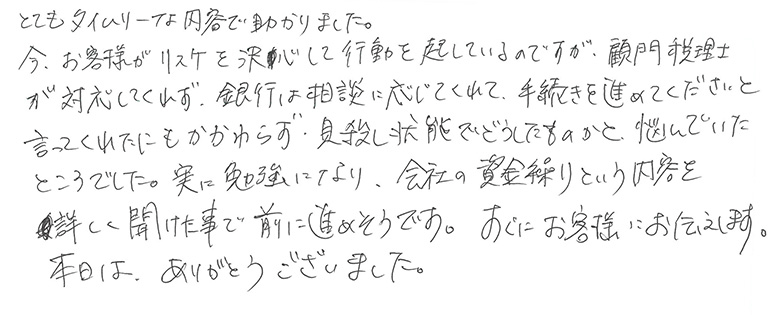 とてもタイムリーな内容で助かりました。
今、お客様がリスケを決心して行動を起しているのですが、顧問税理士
が対応してくれず、銀行は相談に応じてくれて、手続きを進めてくださいと
言ってくれたにもかかわらず、見殺し状態でどうしたものかと、悩んでいた
ところでした。実に勉強になり、会社の資金繰りという内容を
詳しく聞けた事で前に進めそうです。すぐにお客様にお伝えします。
本日は、ありがとうございました。